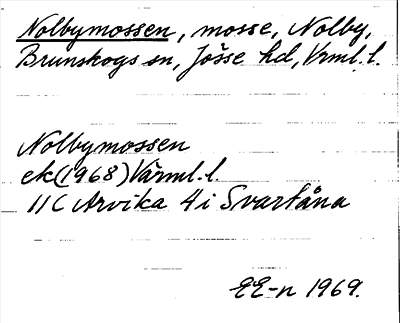 Nolbymossen, mosse, Nolby,
Brunskogs sn, Jösse hd, Vrml. l.
Nolbymossen
ek (1968) Värml. l.
11C Arvika 4i Svartåna
EE-n 1969.